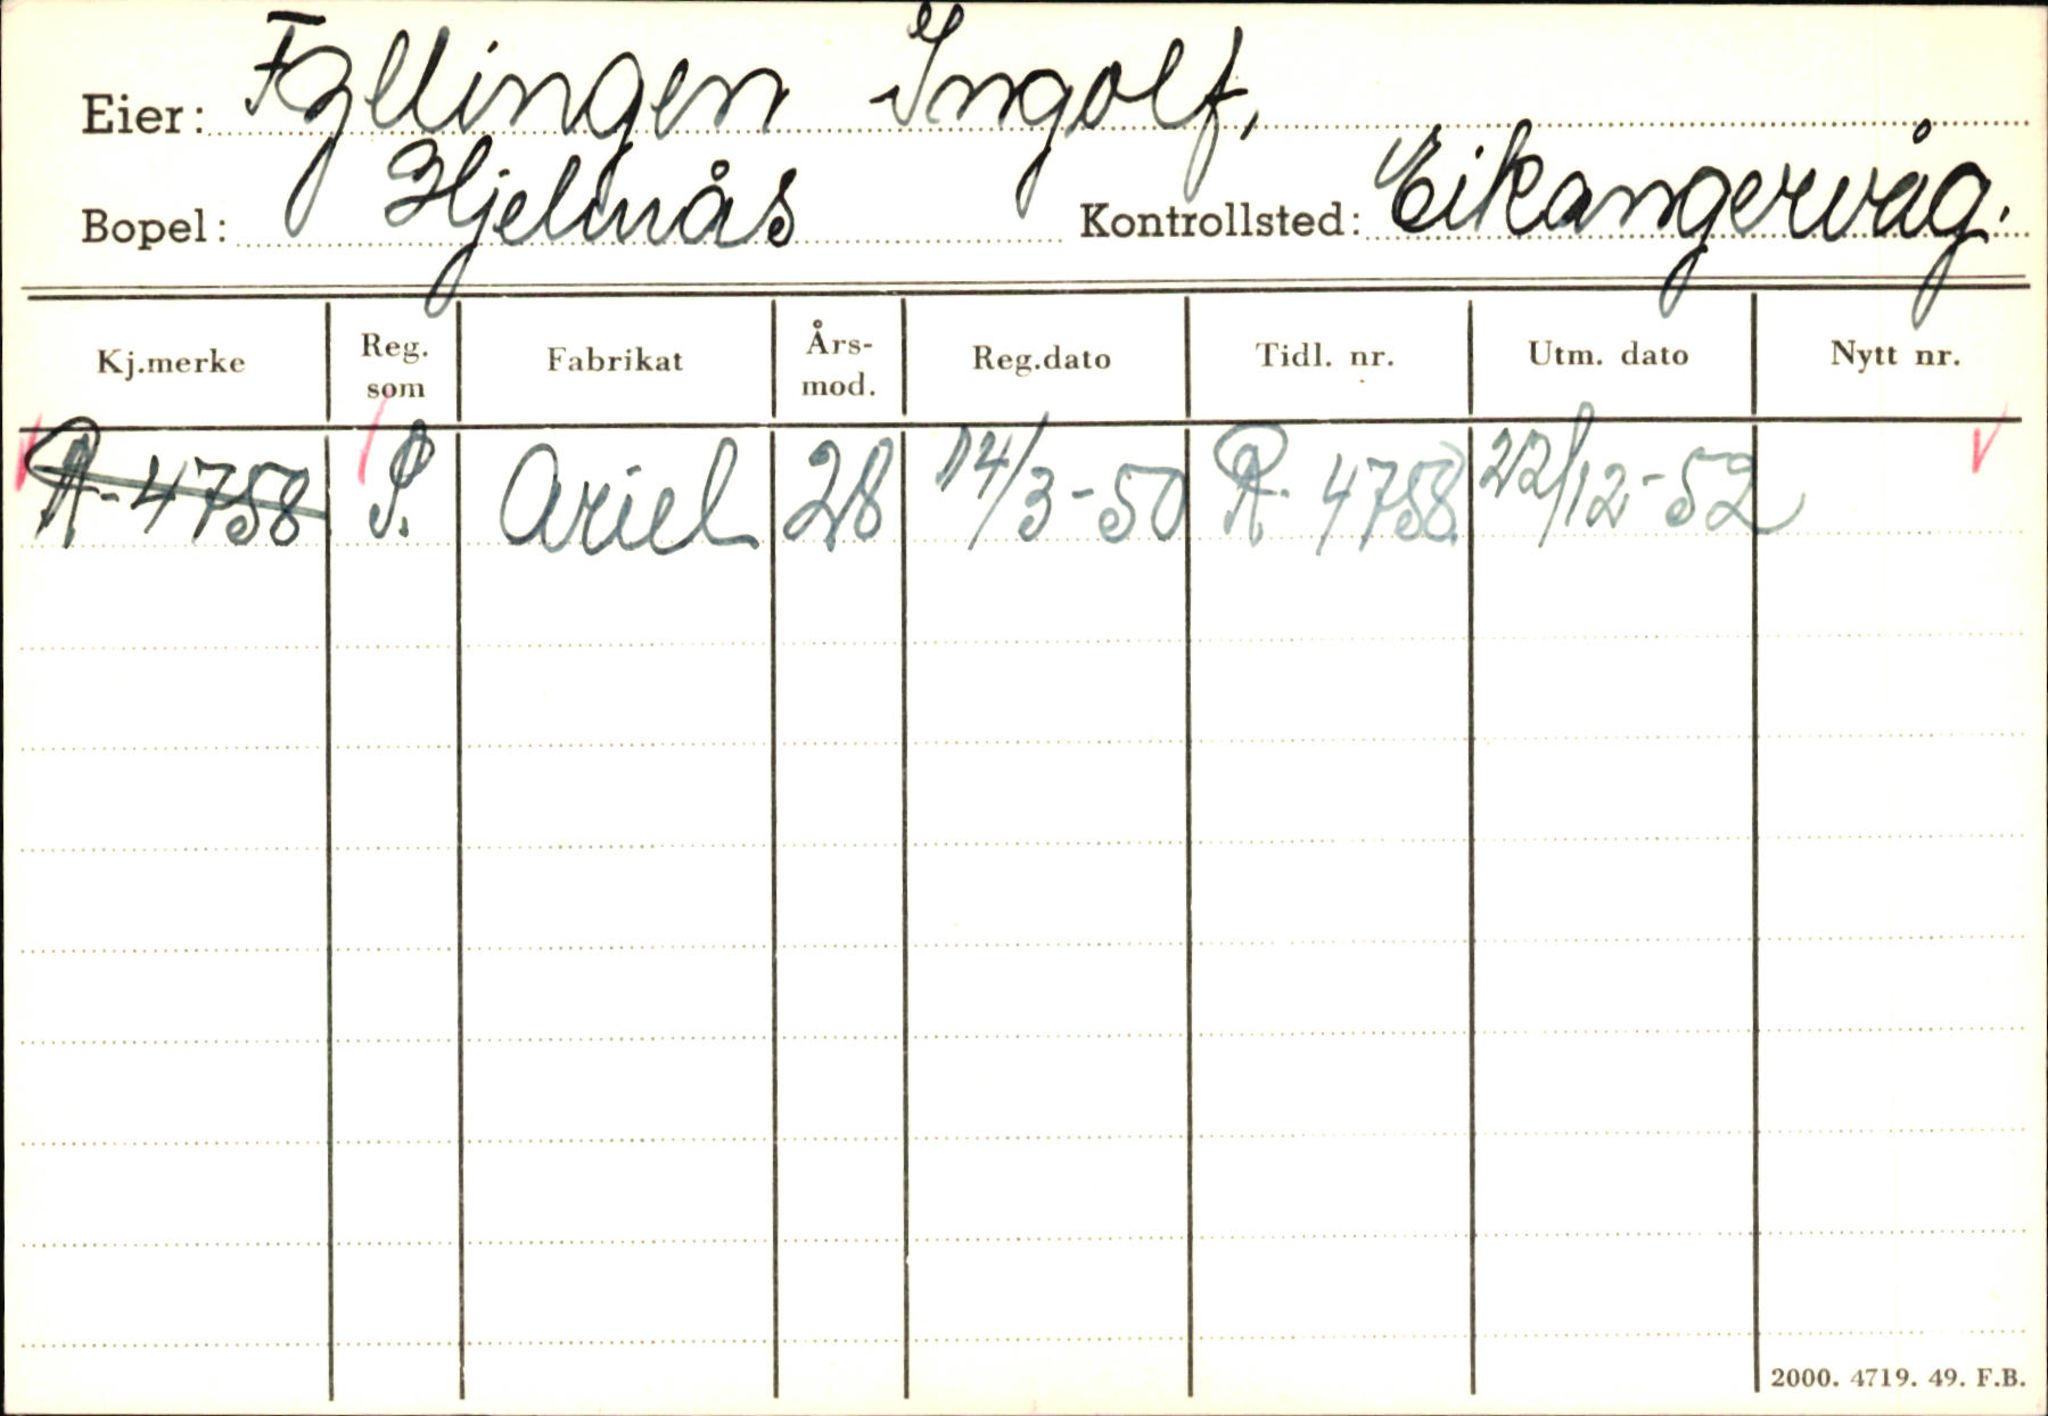 Eier: Fyllingen Ingolf,
Bopel: Hjelmås Kontrollsted: Eikangervåg.
Kj.merke Reg. som Fabrikat Års-mod. Reg.dato Tidl. nr. Utm. dato Nytt nr.
R-4758 P. Ariel 28 14/3-50 R-4758 22/12-52
2000. 4719. 49. F.B.